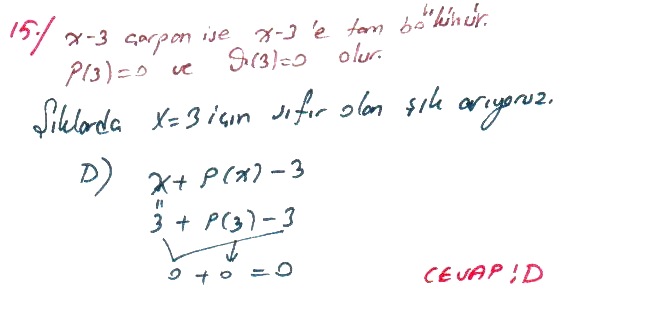 15-/ x-3 çarpan ise x-3 'e tam bölünür.
P(3)=0 ve Q(3)=0 olur.
Şıklarda x=3 için sıfır olan şık arıyoruz.
D) x + P(x) - 3
"
3 + P(3) - 3
0 + 0 = 0
CEVAP: D